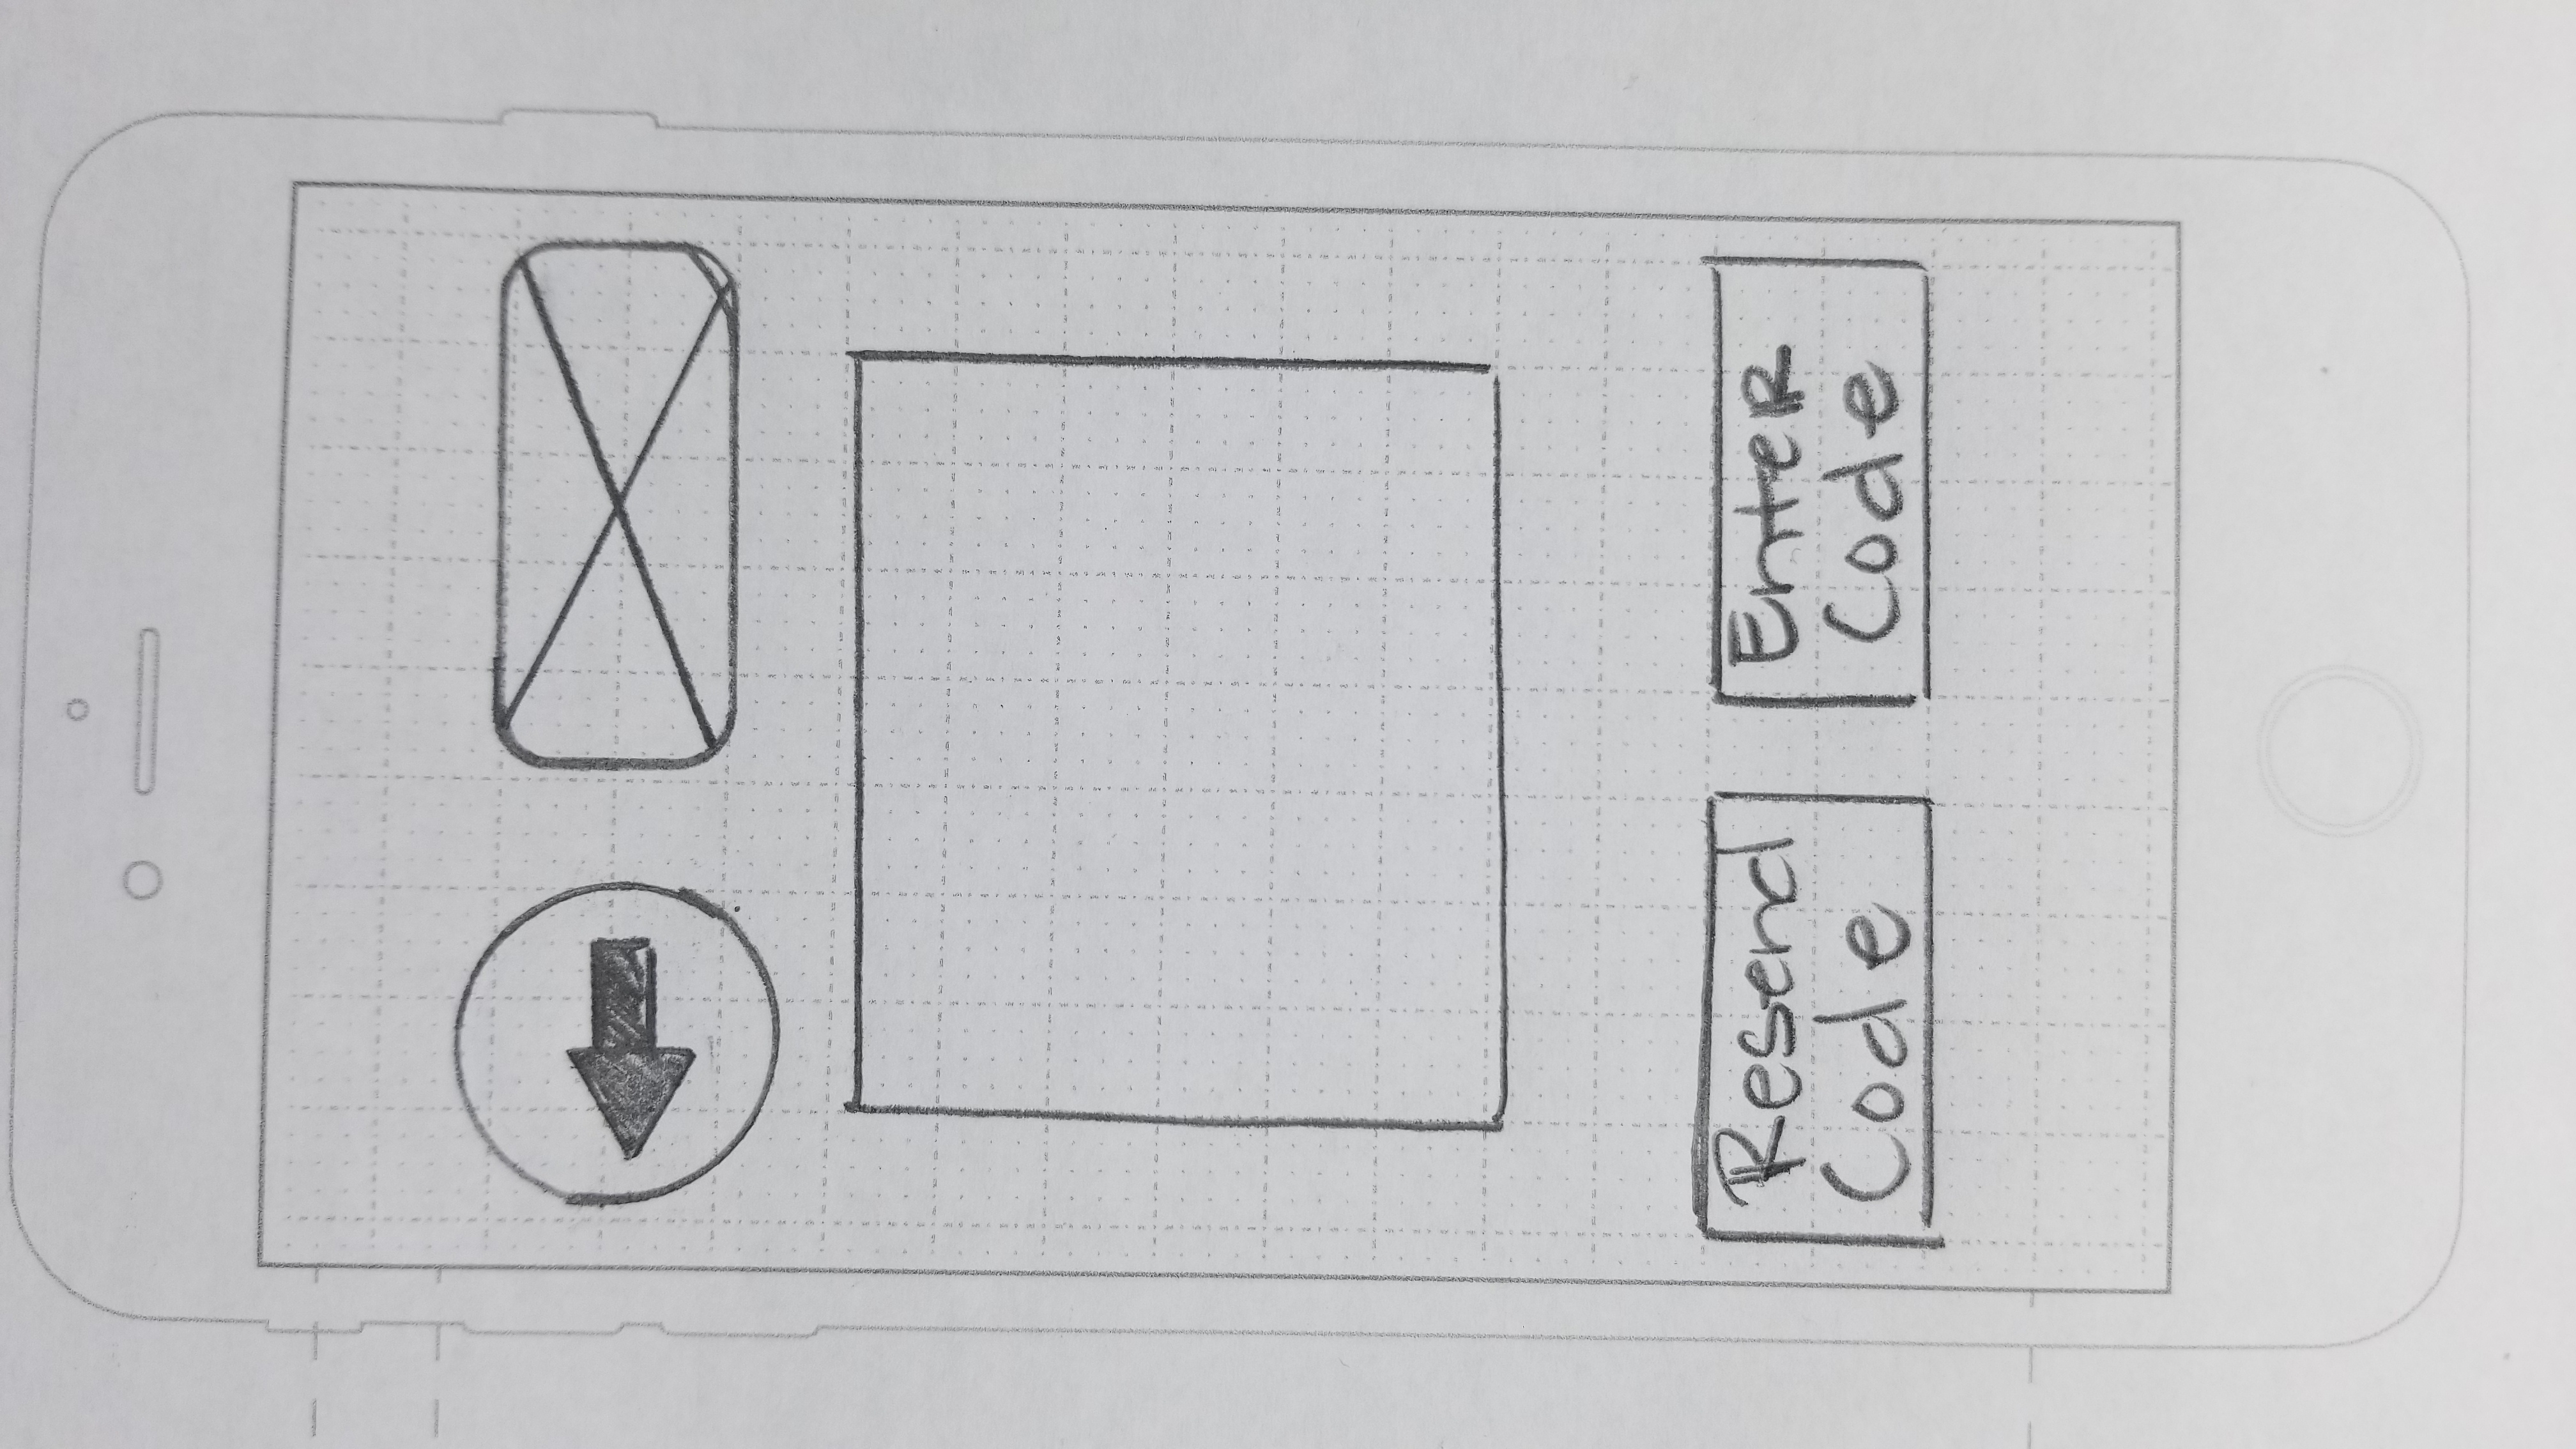 Resend
Code
Enter
Code